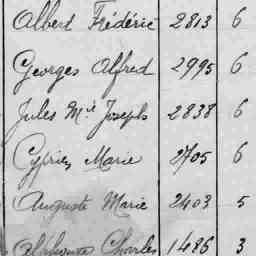 Albert Frédéric 2813 6
Georges Alfred 2995 6
Jules Mie Joseph 2838 6
Cyprien Marie 2705 6
Auguste Marie 2403 5
Alphonse Charles 1486 3